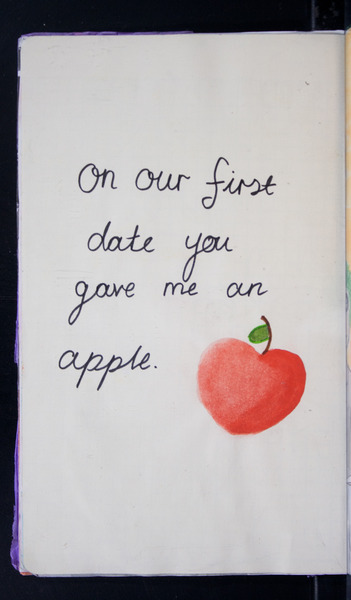 On our first
date you
gave me an
apple.